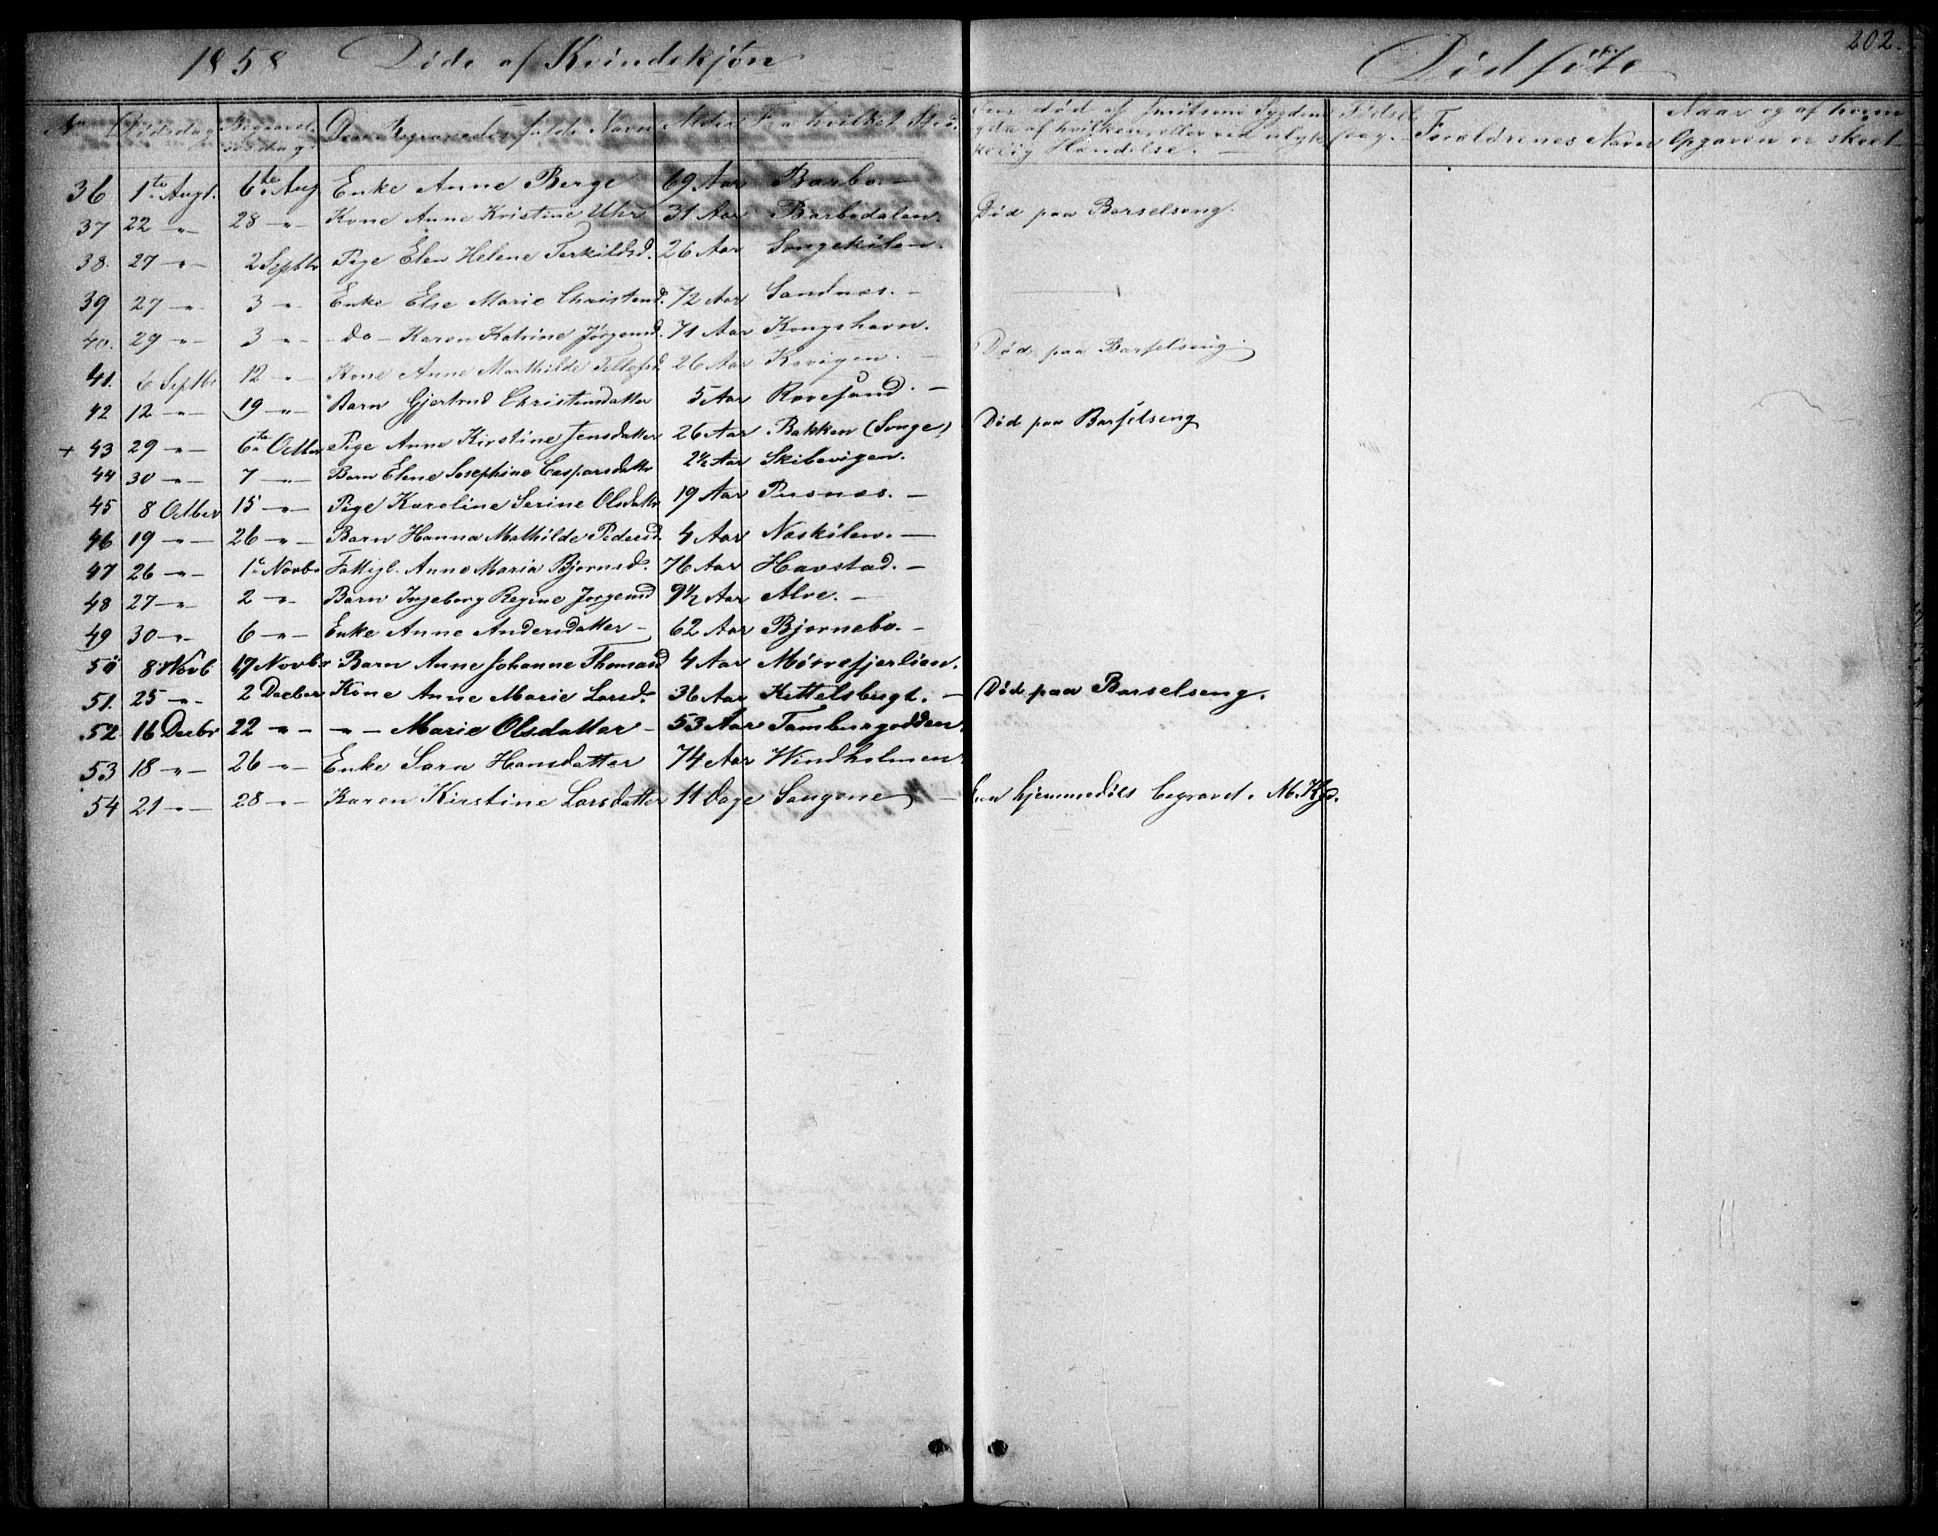 1858 Døde af Kvindekjøn
Dødføte 202.
No Dødsdag Begravelsesdag Den Begravedes fulde Navn Alder Fra hvilket Sted Om død af smitsom Sygdom
og da af hvilken, eller ved ulykkelig Hændelse. Fødselsdag. Forældrenes Navn Naar og af hvem
Opgaven er skeet
36 1te Augt. 6te Aug Enke Anne Berge 69 Aar Barbo. —
37 22 -"- 28 -"- Kone Anne Kristine Uhr 31 Aar Barbodalen. Død paa Barselseng.
38. 27 -"- 2 Septbr Pige Elen Helene Terkildsd. 26 Aar Songekilen.
39 27 -"- 3 -"- Enke Else Marie Christensd. 72 Aar Sandnæs. —
40. 29 -"- 3 -"- -do- Karen Katrine Jørgensd. 71 Aar Kongshavn.
41. 6 Septbr 12 -"- Kone Anne Marthilde Tellefsd 26 Aar Kovigen. — Død paa Barselseng.
42 12 -"- 19 -"- Barn Gjertrud Christensdatter 5 Aar Rævesand. —
+ 43 29 -"- 6te Octber Pige Anne Kirstine Jensdatter 26 Aar Bakken (Songe) Død paa Barselseng
44 30 -"- 7 -"- Barn Elene Josephine Caspersdattr 2½ Aar Skibevigen.
45 8 Octber 15 -"- Pige Karoline Serine Olsdattr 19 Aar Pusnæs. —
46 19 -"- 26 -"- Barn Hanna Mathilde Pedersd 4 Aar Naskilen. —
47 26 -"- 1. Novb. Fattigl. Anne Maria Bjørnsd. 76 Aar Havstad. —
48 27 -"- 2 -"- Barn Ingeborg Regine Jørgensd 9½ Aar Alve. —
49 30 -"- 6 -"- Enke Anne Andersdatter — 62 Aar Bjørnebo. —
50 8 Novb. 17 Novbr Barn Anne Johanne Thomasd 4 Aar Mørefjerlien.
51. 25 -"- 2 Decber Kone Anne Marie Larsd. 36 Aar Kittelsbugt. — Død paa Barselseng.
52. 16 Decbr 22 -"- -"- Marie Olsdatter — 53 Aar Tamburgodden.
53 18 -"- 26 -"- Enke Sara Hansdatter 74 Aar Windholmen
54 21 -"- 28 -"- Karen Kirstine Larsdatter 11 Dage Sangene — hjemmedøbt begravet